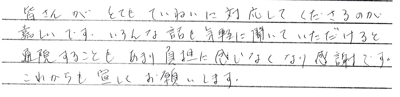 皆さんが とても ていねいに 対応して くださるのが
嬉しいです. いろんな話も 気軽に聞いて いただけると
通院することも あまり負担に感じなくなり 感謝です.
これからも 宜しく お願いします.